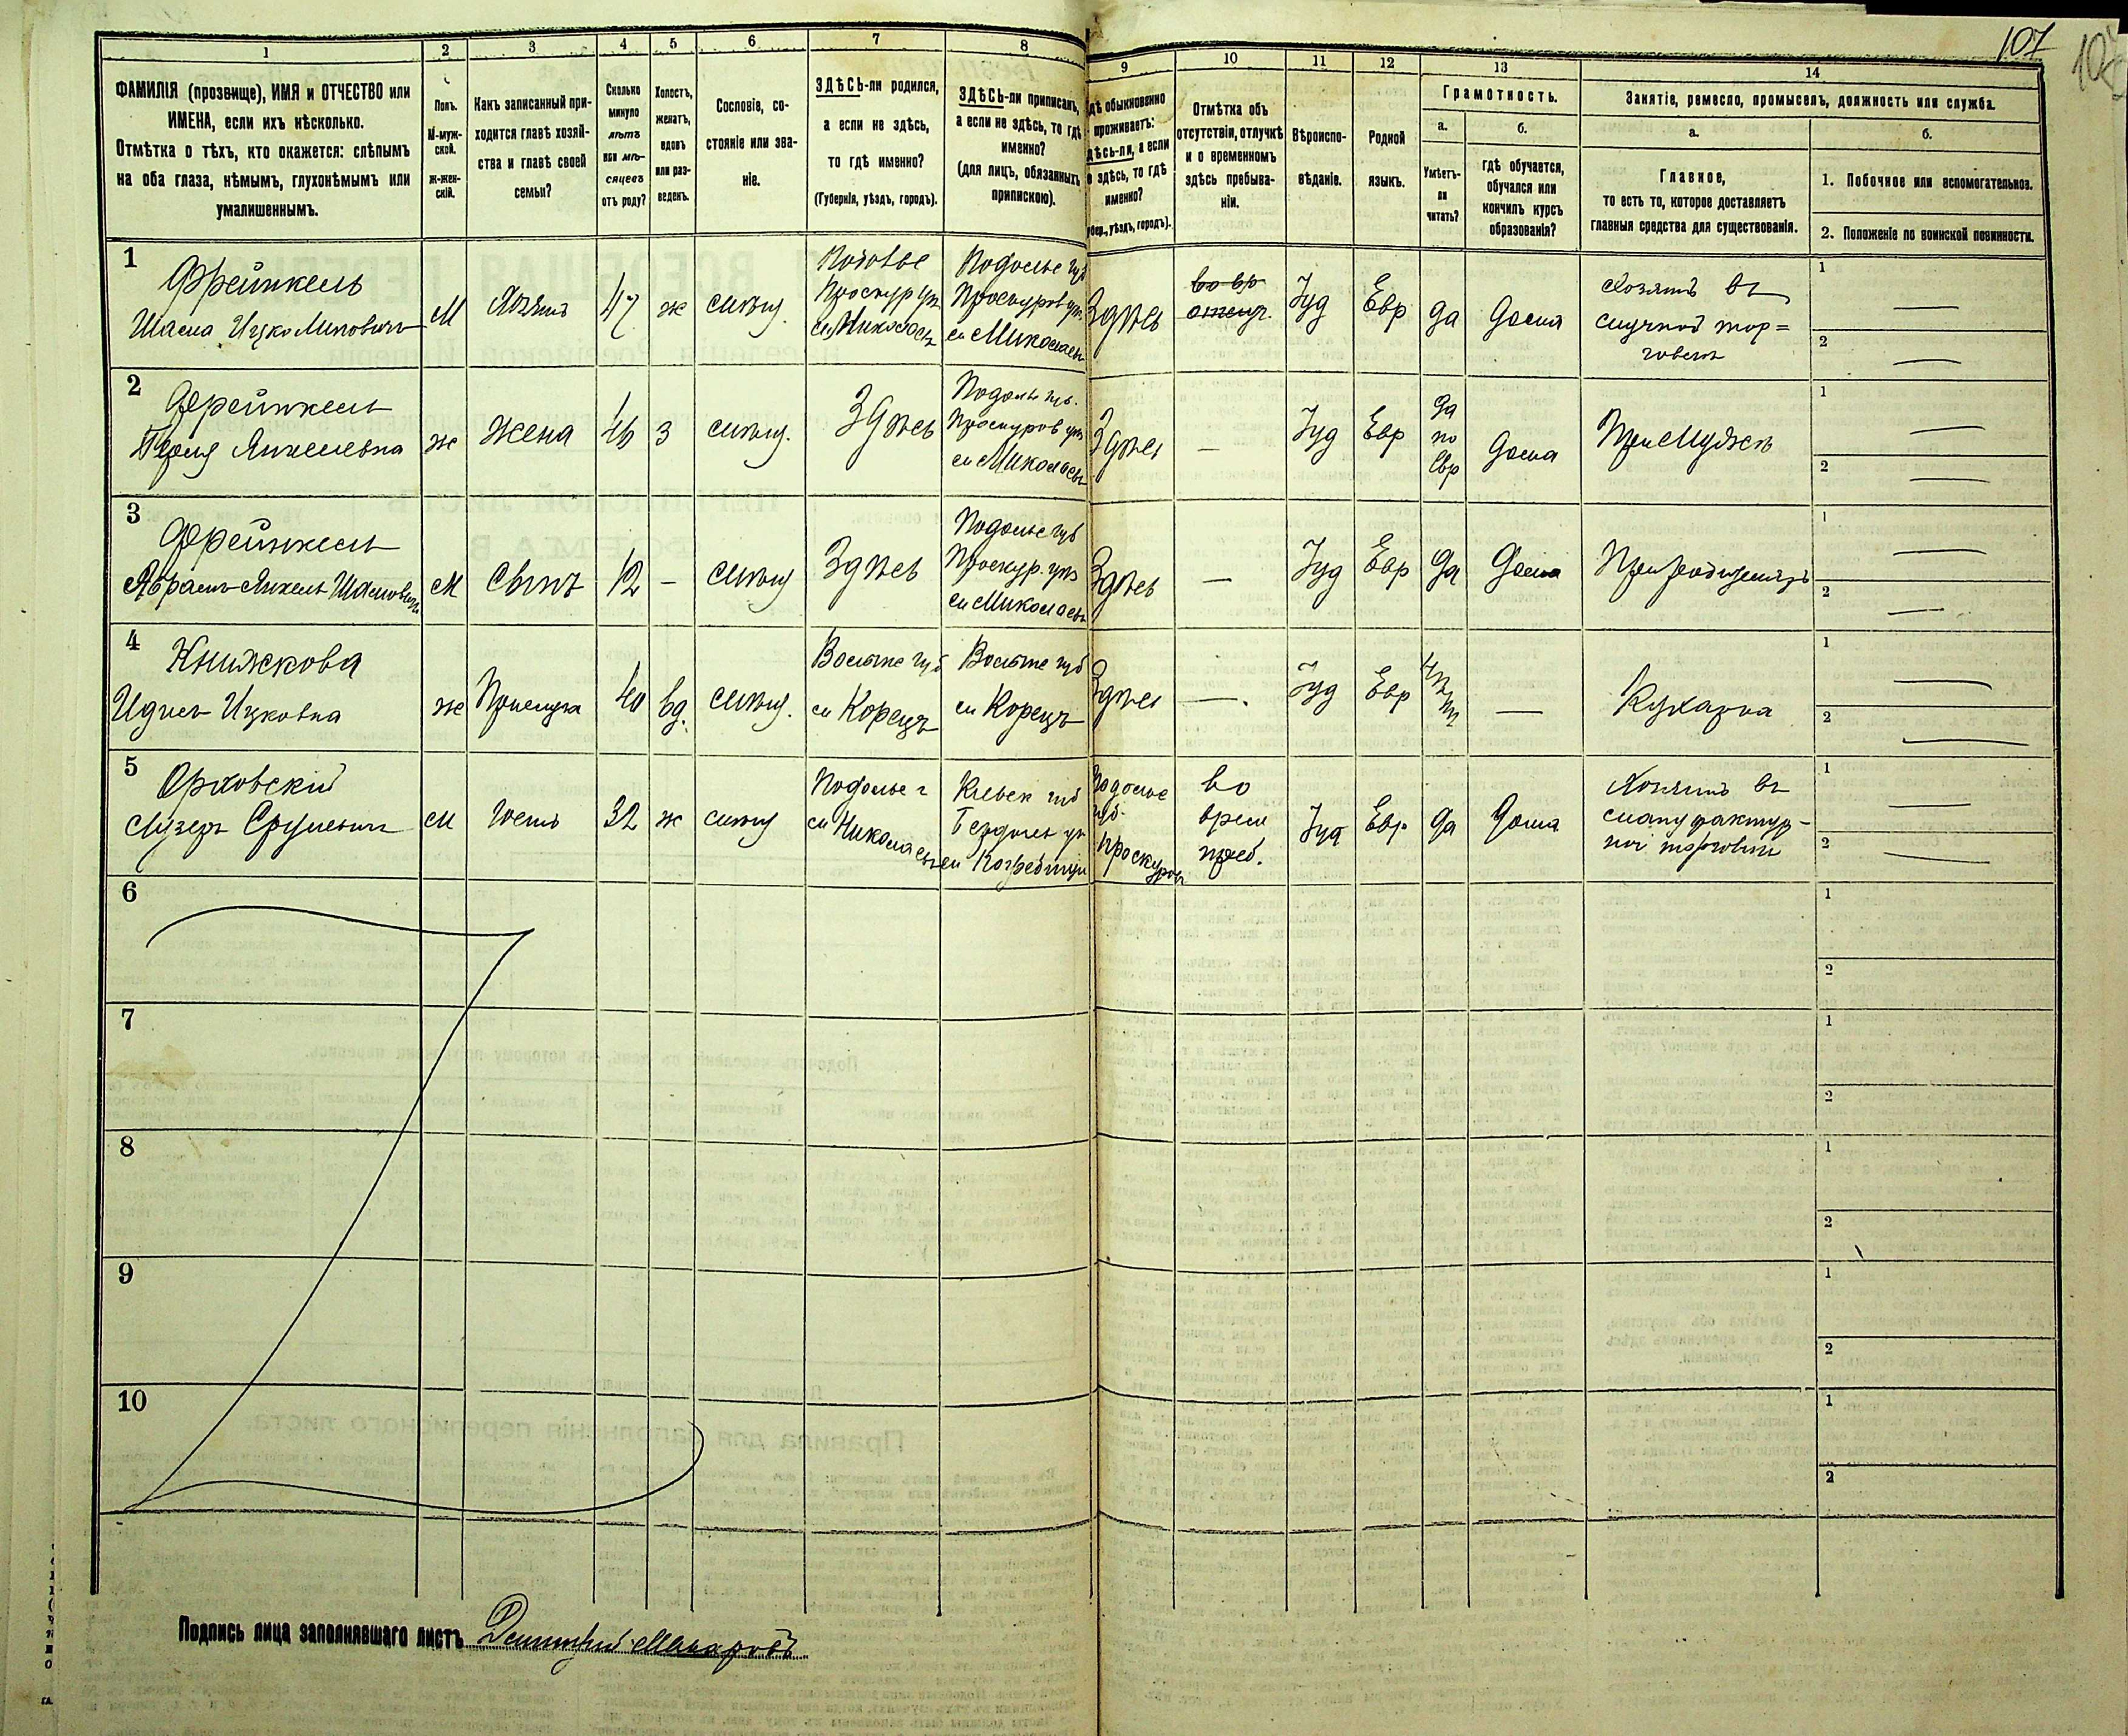 107
1 2 3 4 5 6 7 8 9 10 11 12 13 14
ФАМИЛІЯ (прозвище), ИМЯ и ОТЧЕСТВО или
ИМЕНА, если ихъ нѣсколько.
Отмѣтка о тѣхъ, кто окажется: слѣпымъ
на оба глаза, нѣмымъ, глухонѣмымъ или
умалишеннымъ.
Полъ.
М-муж-
ской.
ж-жен-
скій.
Какъ записанный при-
ходится главѣ хозяй-
ства и главѣ своей
семьи?
Сколько
минуло
лѣтъ
или мѣ-
сяцевъ
отъ роду?
Холостъ,
женатъ,
вдовъ
или раз-
веденъ.
Сословіе, со-
стояніе или зва-
ніе.
ЗДѢСЬ-ли родился,
а если не здѣсь,
то гдѣ именно?
(Губернія, уѣздъ, городъ).
ЗДѢСЬ-ли приписанъ,
а если не здѣсь, то гдѣ
именно?
(для лицъ, обязанныхъ
припискою).
гдѣ обыкновенно
проживаетъ:
здѣсь-ли, а если
не здѣсь, то гдѣ
именно?
(губер., уѣздъ, городъ).
Отмѣтка объ
отсутствіи, отлучкѣ
и о временномъ
здѣсь пребыва-
ніи.
Вѣроиспо-
вѣданіе.
Родной
языкъ.
Грамотность.
а.
Умѣетъ-
ли
читать?
б.
гдѣ обучается,
обучался или
кончилъ курсъ
образованія?
Занятіе, ремесло, промыселъ, должность или служба.
а.
Главное,
то есть то, которое доставляетъ
главныя средства для существованія.
б.
1. Побочное или вспомогательное.
2. Положеніе по воинской повинности.
1
Фрейнкель
Шасма Ицко
М
47
ж
Проскур
Подолье губ
Проскуров
Здѣсь
Іуд
Евр
да
Дома
Хозяинъ въ
скучной тор=
говлѣ
2
Фрейнкель
Янкелевна
ж
жена
46
з
Здѣсь
Проскуров
Здѣсь
—
Іуд
Евр
да
по
Евр
Дома
При Мужѣ
3
Фрейнкель
Абрамъ-Янкель
М
Сынъ
12
—
Здѣсь
Подолье губ
Проскур.
Здѣсь
—
Іуд
Евр
да
Дома
При родителяхъ
4
Книжкова
Ицковна
ж
Прислуга
40
вд.
Корецъ
Корецъ
Здѣсь
—
Іуд
Евр
нѣтъ
—
Кухарка
5
Орховскій
Лузеръ Срулевич
М
гость
32
ж
Подолье г
Кіевск губ
Подолье
губ.
Проскуров
во
врем
преб.
Іуд
Евр
да
Дома
Хозяинъ въ
ной торговли
6
7
8
9
10
Подпись лица заполнявшаго листъ Дмитрій Макаровъ